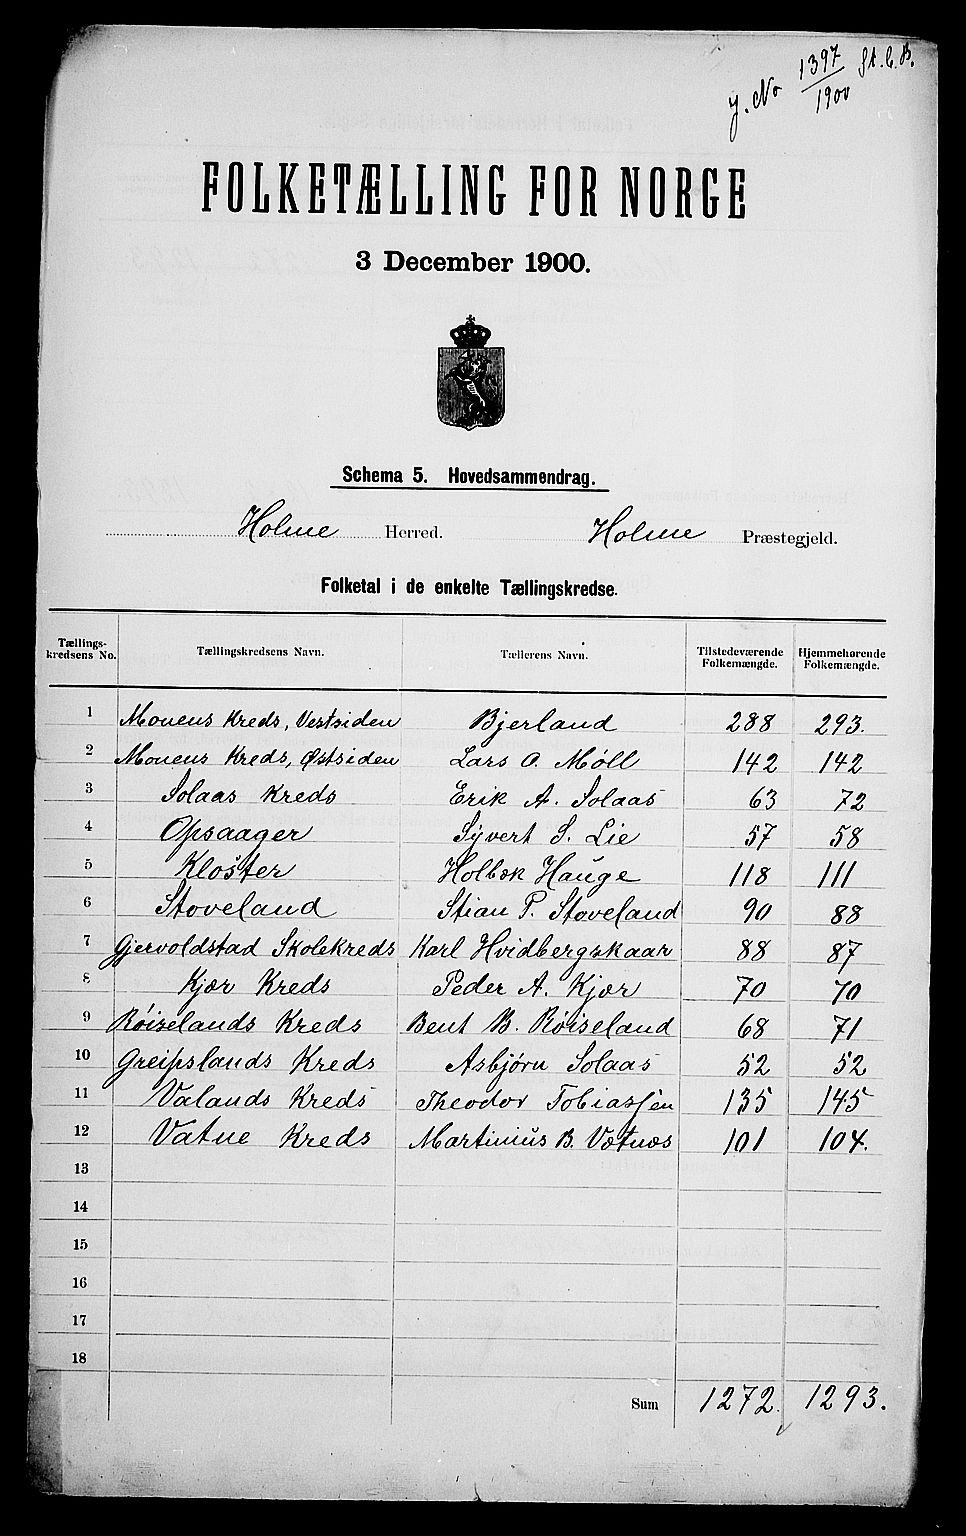 J. No 1397/1900 St. C. B.
FOLKETÆLLING FOR NORGE
3 December 1900.
Schema 5. Hovedsammendrag.
Holme Herred. Holme Præstegjeld.
Folketal i de enkelte Tællingskredse.
Tællings-kredsens No. Tællingskredsens Navn. Tællerens Navn. Tilstedeværende Folkemængde. Hjemmehørende Folkemængde.
1 Monens Kreds, Vestsiden Bjerland 288 293.
2 Monens Kreds, Østsiden Lars O. Møll 142 142
3 Solaas Kreds Erik A. Solaas 63 72
4 Opsaager Syvert S. Lie 57 58
5 Kloster Holbæk Hauge 118 111
6 Stoveland Stian P. Stoveland 90 88
7 Gjervoldstad Skolekreds Karl Hvidbergskaar 88 87
8 Kjær Kreds Peder A. Kjær 70 70
9 Røiselands Kreds Bent B. Røiseland 68 71
10 Greipslands Kreds Asbjørn Solaas 52 52
11 Valands Kreds Theodor Tobiassen 135 145
12 Vatne Kreds Martinius B. Vatnøs 101 104.
13
14
15
16
17
18
Sum 1272. 1293.